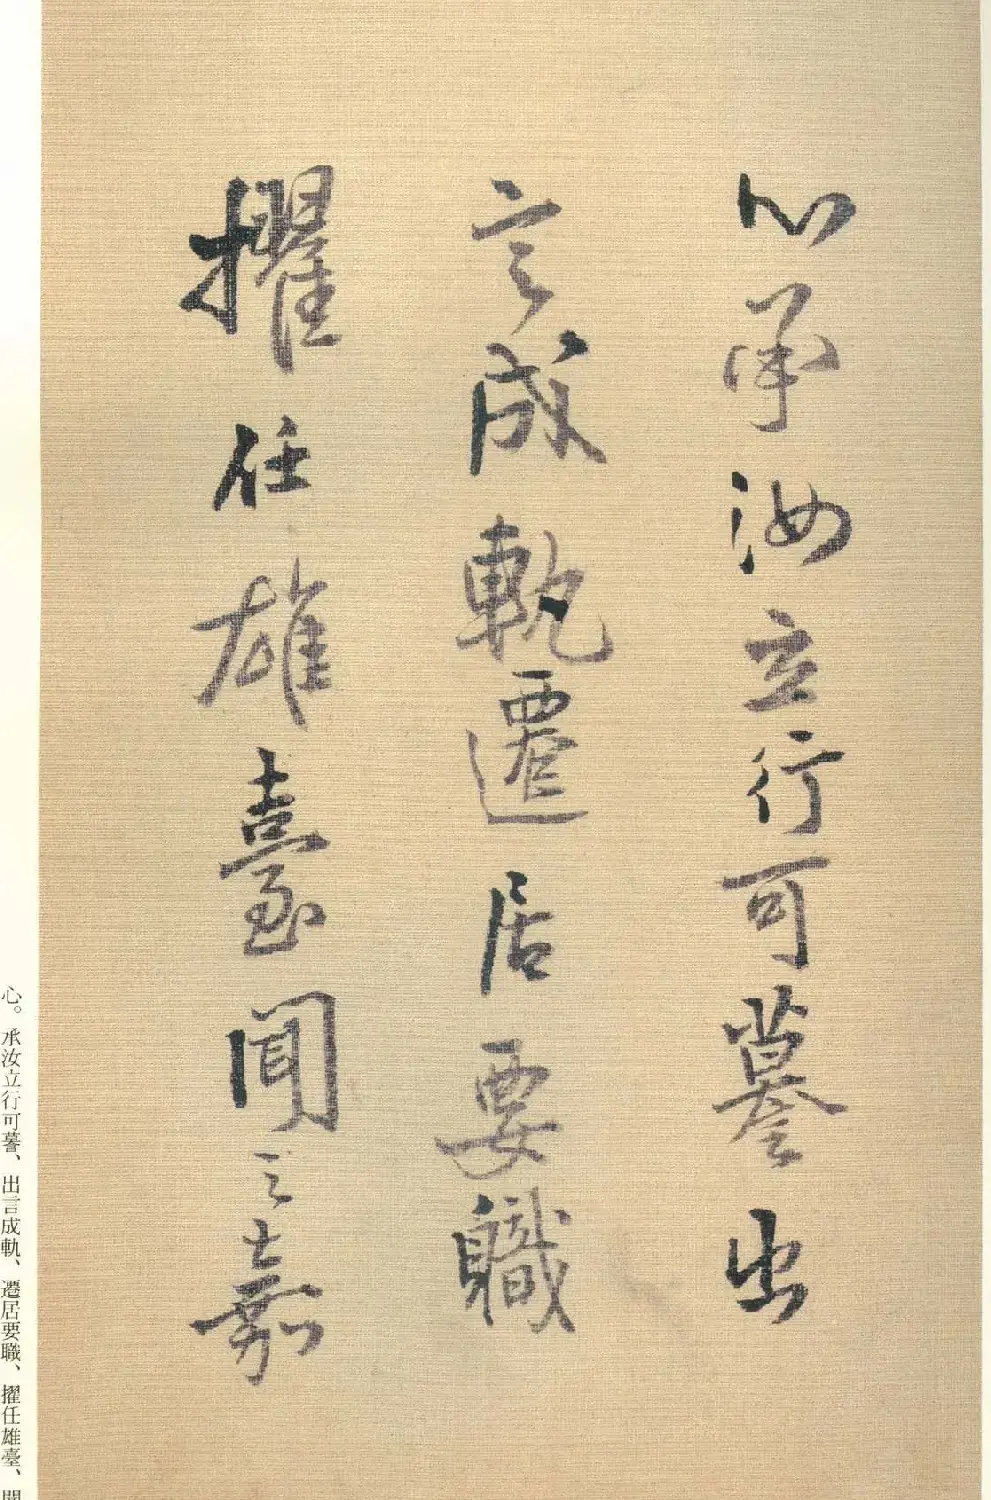 心承汝立行可謩出
言成軌遷居要職
擢任雄臺聞之嘉
心。承汝立行可謩、出言成軌、遷居要職、擢任雄臺、聞